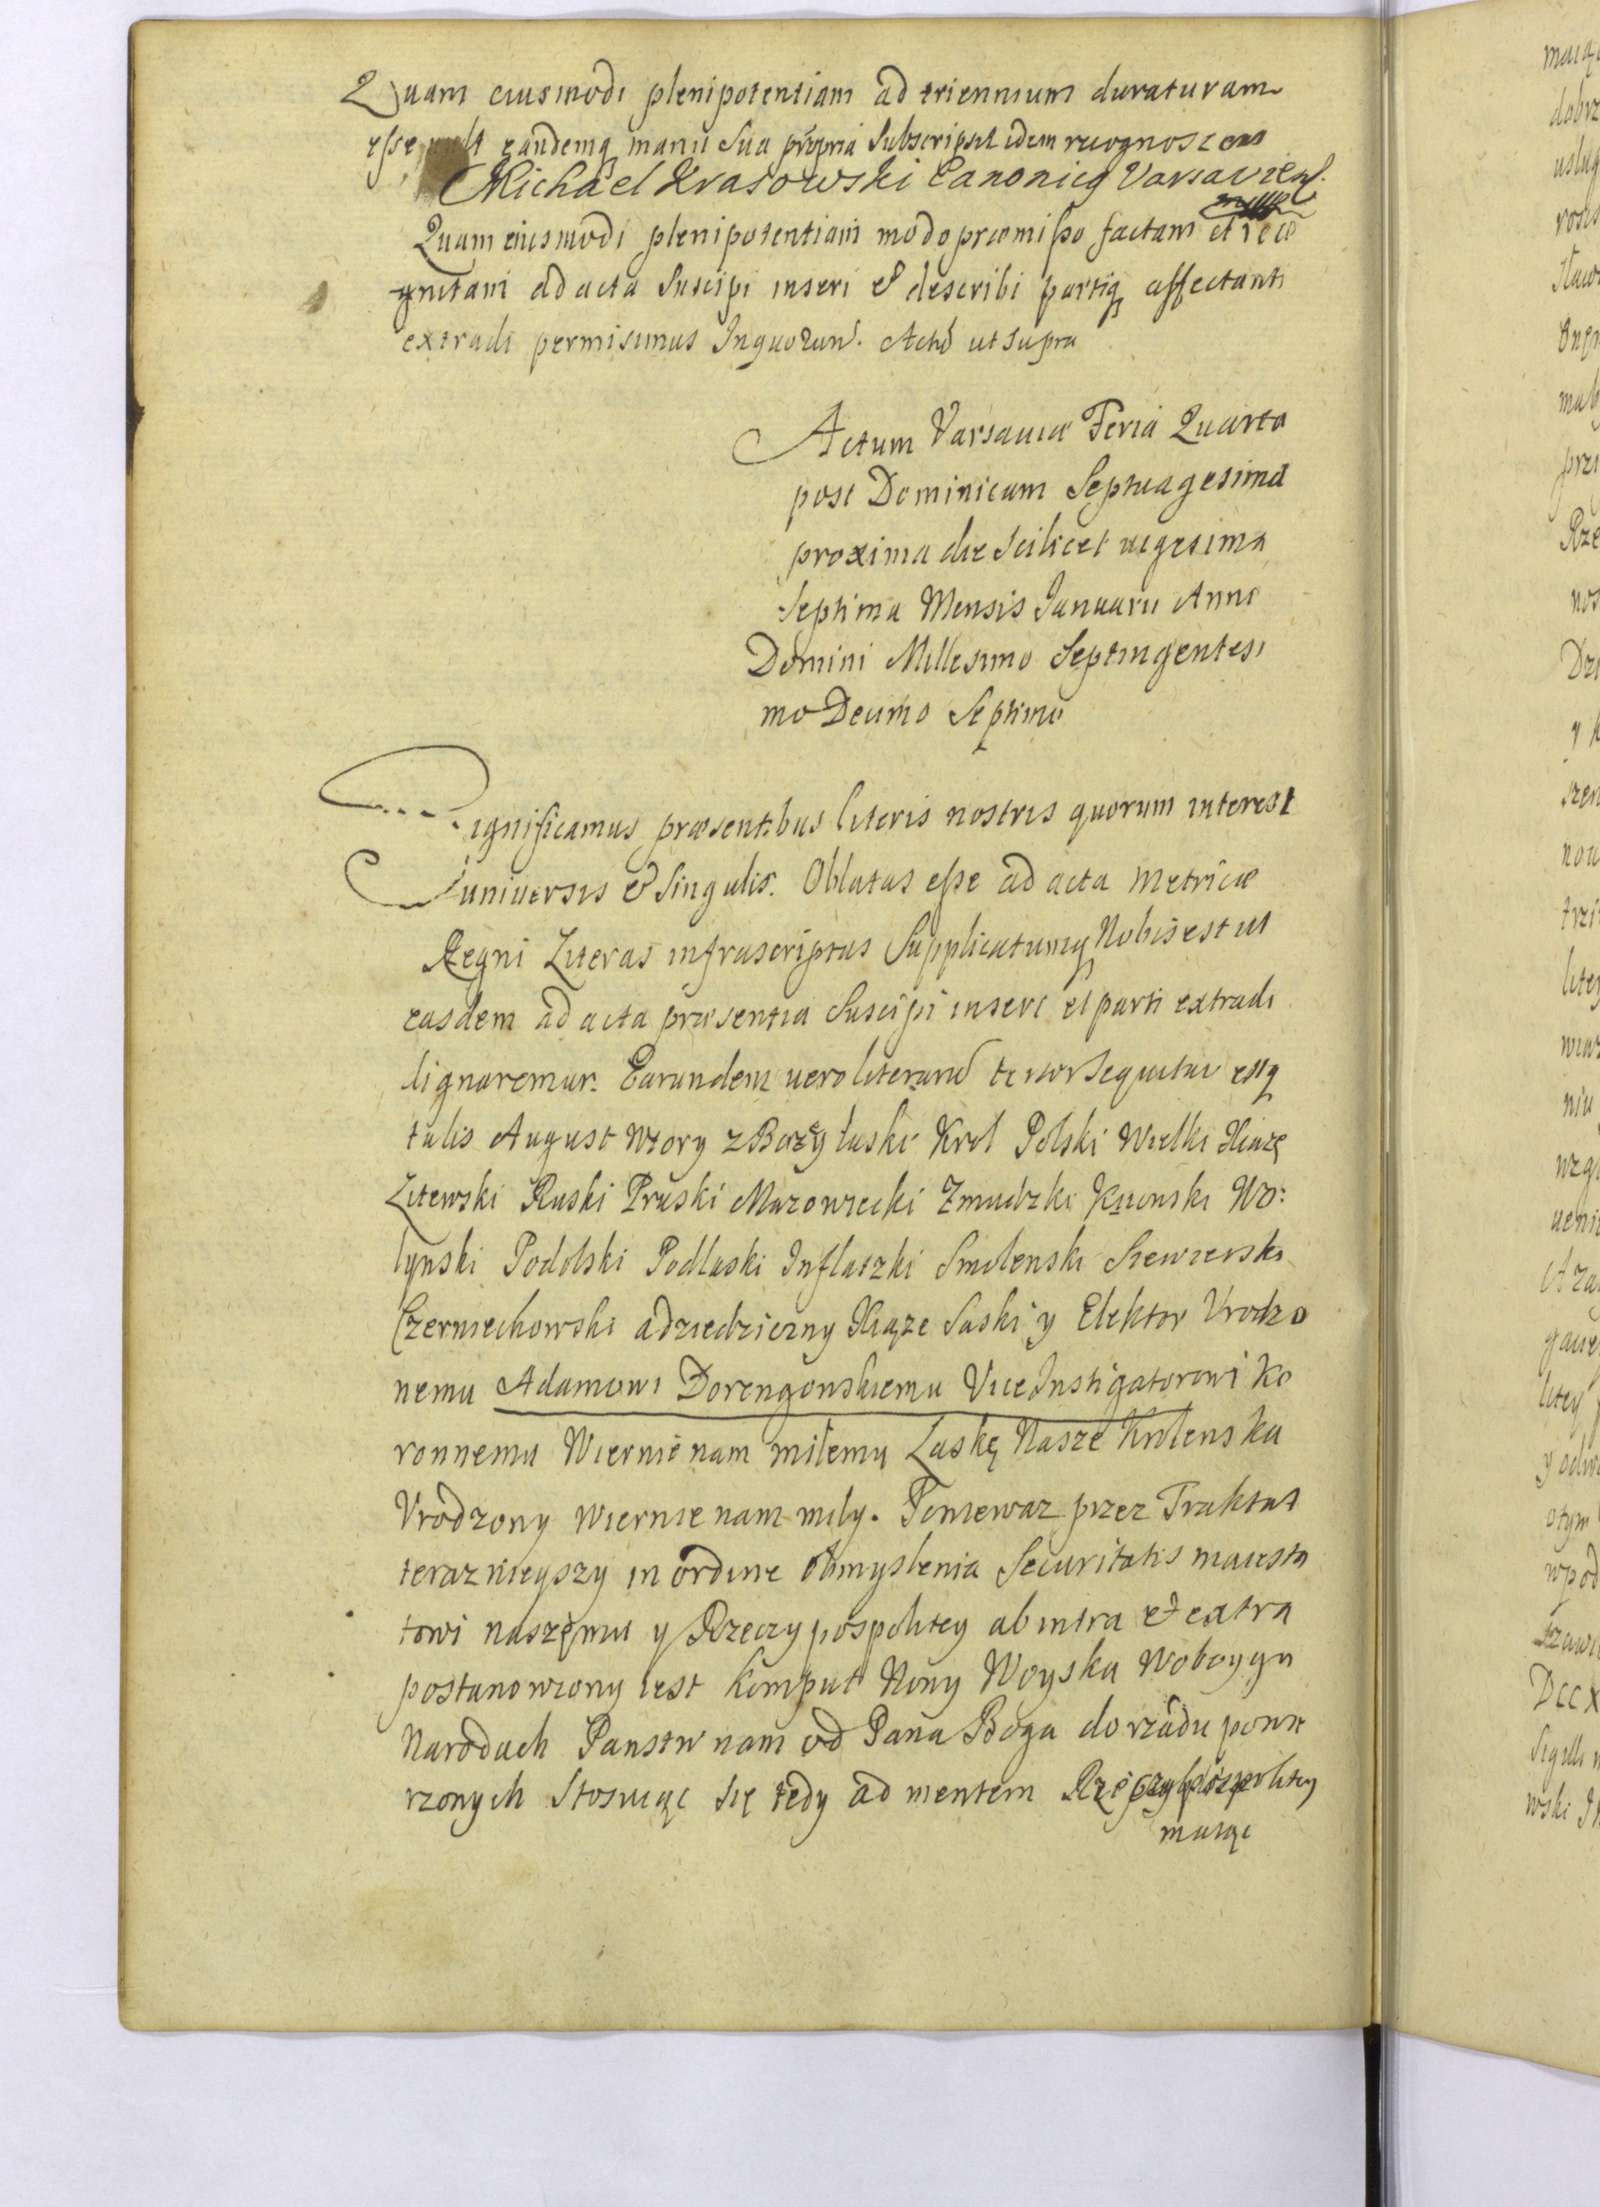 Quam eiusmodi plenipotentiam ad triennium duraturam
esse eandemq manu Sua propria Subscripsit idem recognoscens
Michael Krasowski Canonicq Varsavien
Quam eiusmodi plenipotentiam modo præmisso factam et reco
gnitam ad acta Suscipi inseri & describi partiq affectanti
extradi permisimus Inquorum. Actu ut Supra
Actum Varsaviæ Feria Quarta
post Dominicam Septuagesima
proxima die Scilicet uigesima
Septima Mensis Januarii Anno
Domini Millesimo Septingentesi
mo Decimo Septimo
Significamus præsentibus literis nostris quorum interest
universis & Singulis. Oblatas esse ad acta Metricæ
Regni Literas infrascriptas Supplicatumq Nobis est ut
easdem ad acta præsentia Suscipi inseri et parti extradi
dignaremur. Earundem uero literarum tenor Sequitur estq
talis August wtory z Bozey łaski Krol Polski Wielki Xiaze
Litewski Ruski Pruski Mazowiecki Zmudzki Kiiowski Wo:
lynski Podolski Podlaski Inflatzki Smolenski Siewierski
Czerniechowski a dziedziczny Xiąze Saski y Elektor Vrodzo
nemu Adamowi Dorengowskiemu Vice Instigatorowi Ko
ronnemu Wiernie nam miłemu Łaskę Nasze Krolenska
Vrodzony wiernie nam miły. Poniewaz przez Traktat
terazneyszy in ordine obmyslenia Securitatis maiesta
towi naszemu y Rzeczypospolitey ab intra et extra
postanowiony iest Komput Nowy Woyska Woboygu
Narodach Panstw nam od Pana Boga do rządu powie
rzonych Stosuiąc Się tedy ad mentem Rzeczypospolitey
maiąc